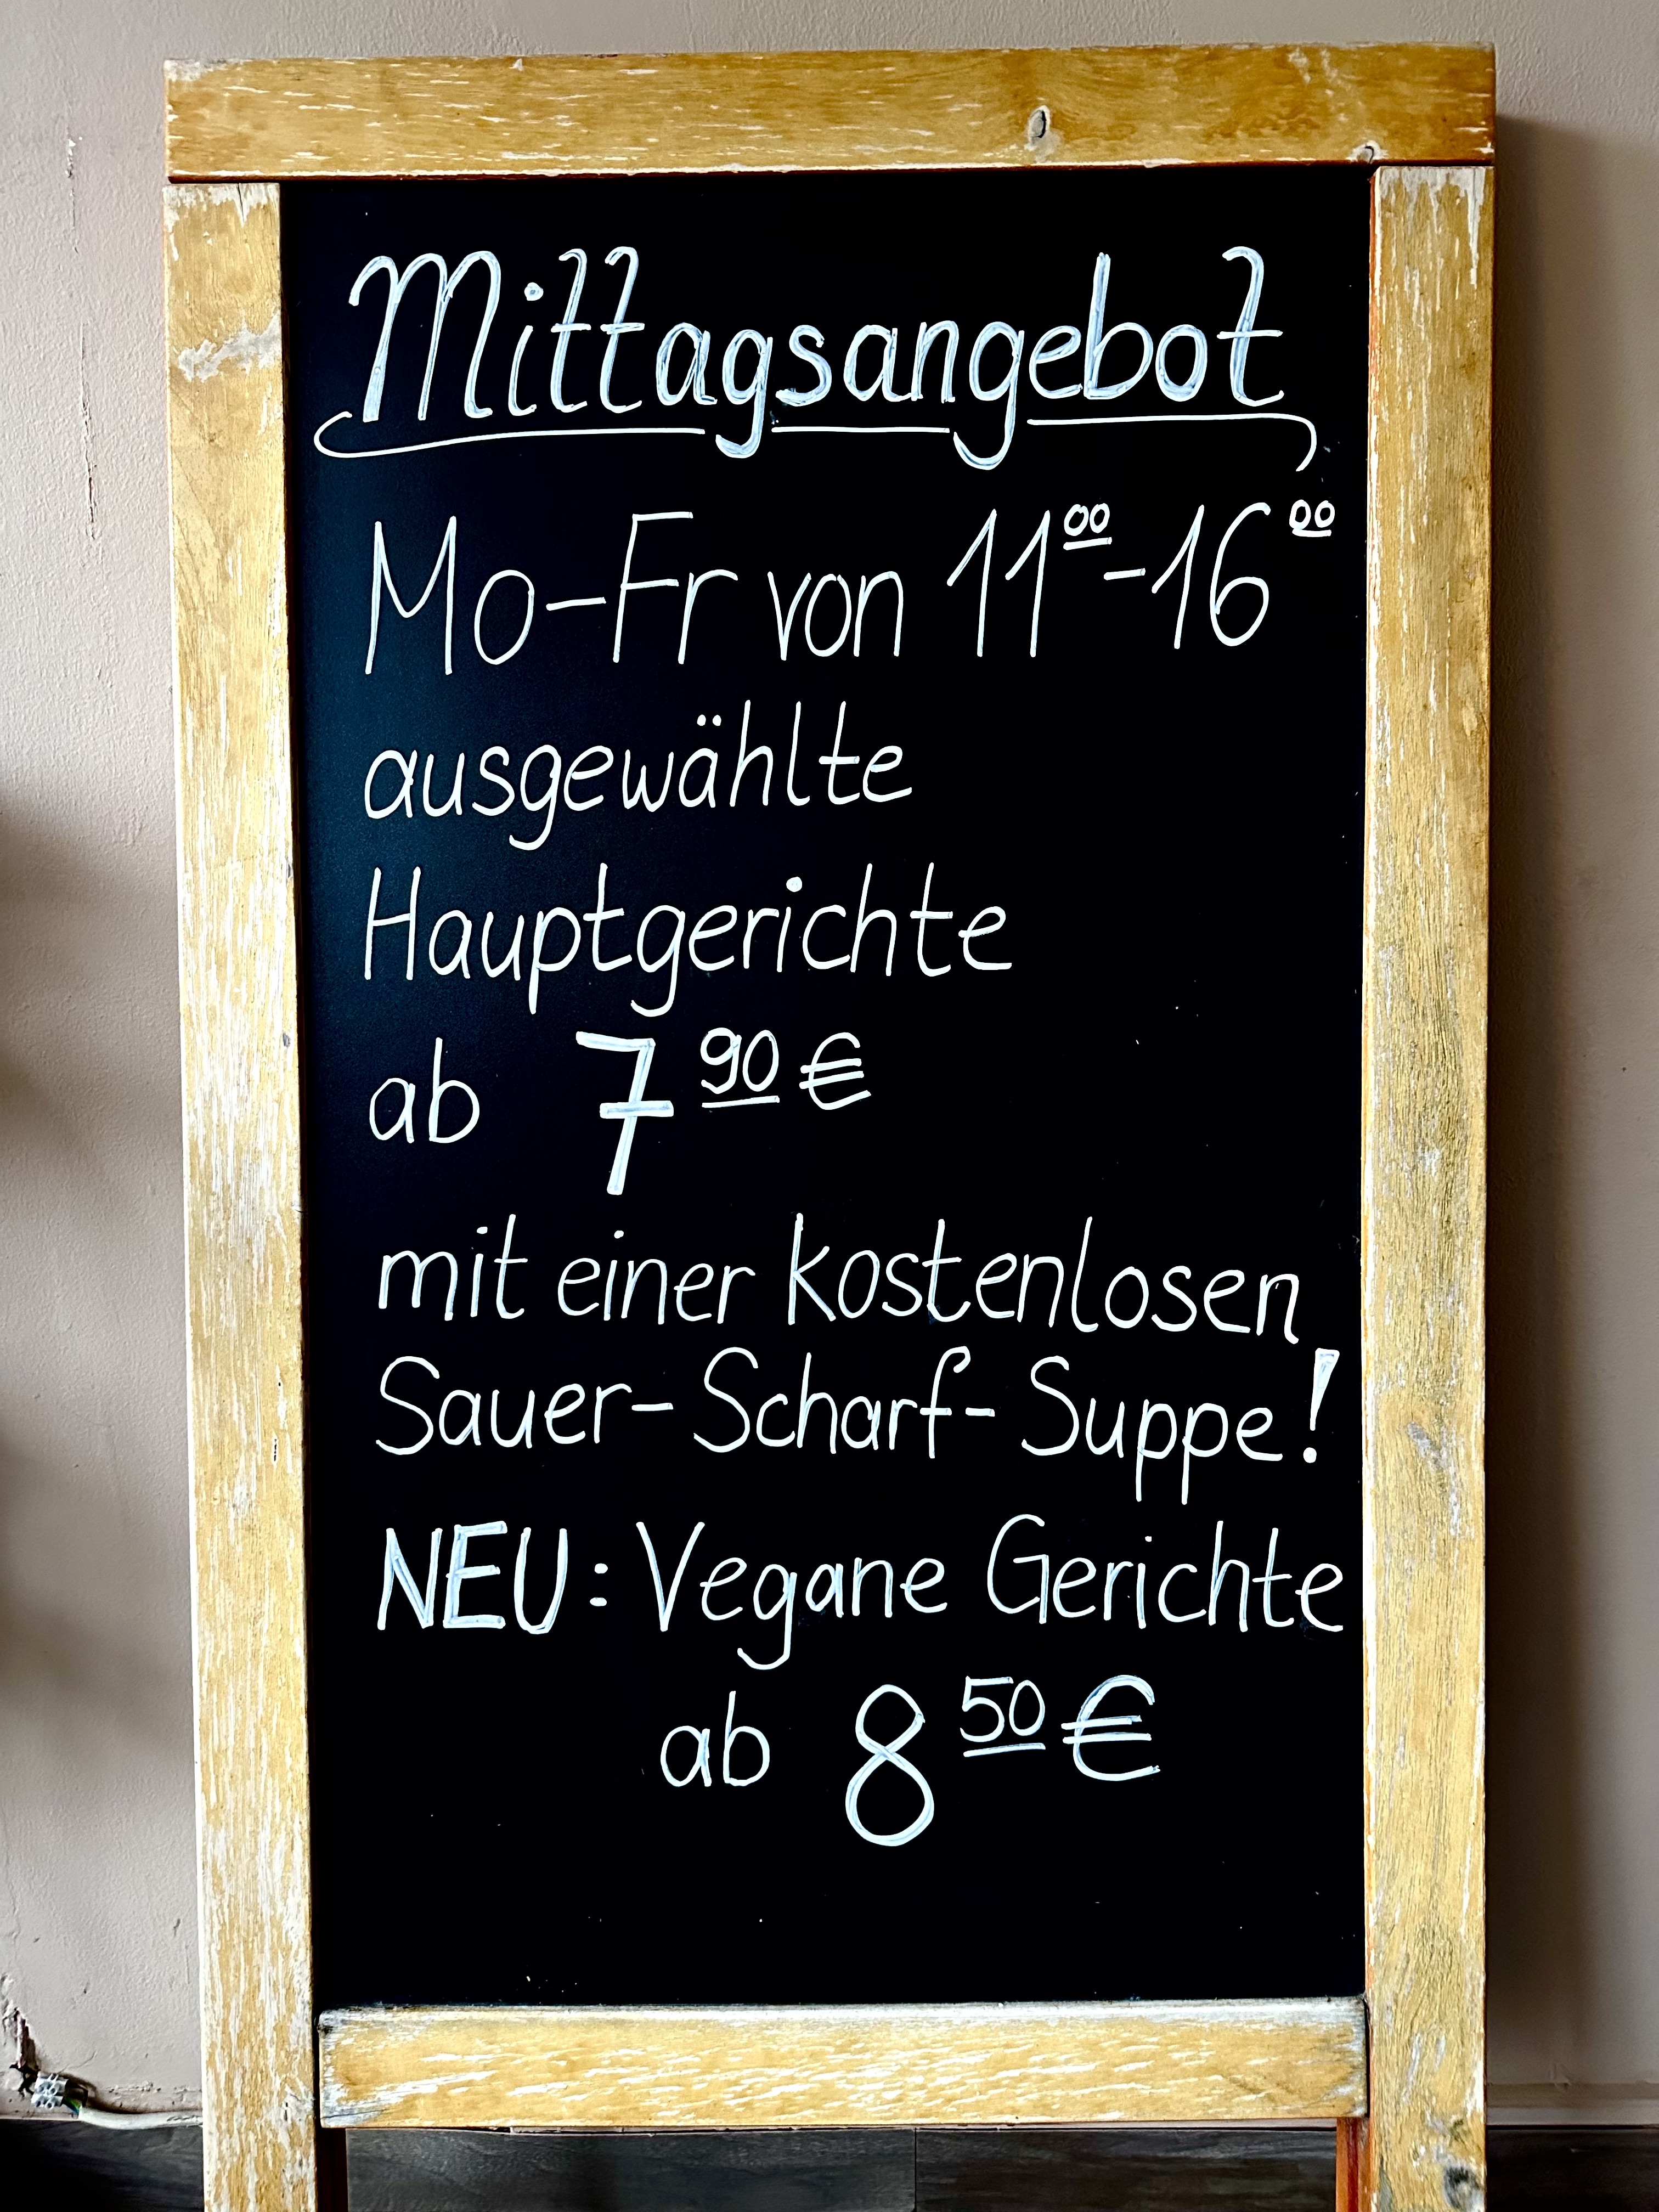 Mittagsangebot
Mo-Fr von 11⁰⁰-16⁰⁰
ausgewählte
Hauptgerichte
ab 7⁹⁰ €
mit einer kostenlosen
Sauer-Scharf-Suppe!
NEU: Vegane Gerichte
ab 8⁵⁰ €